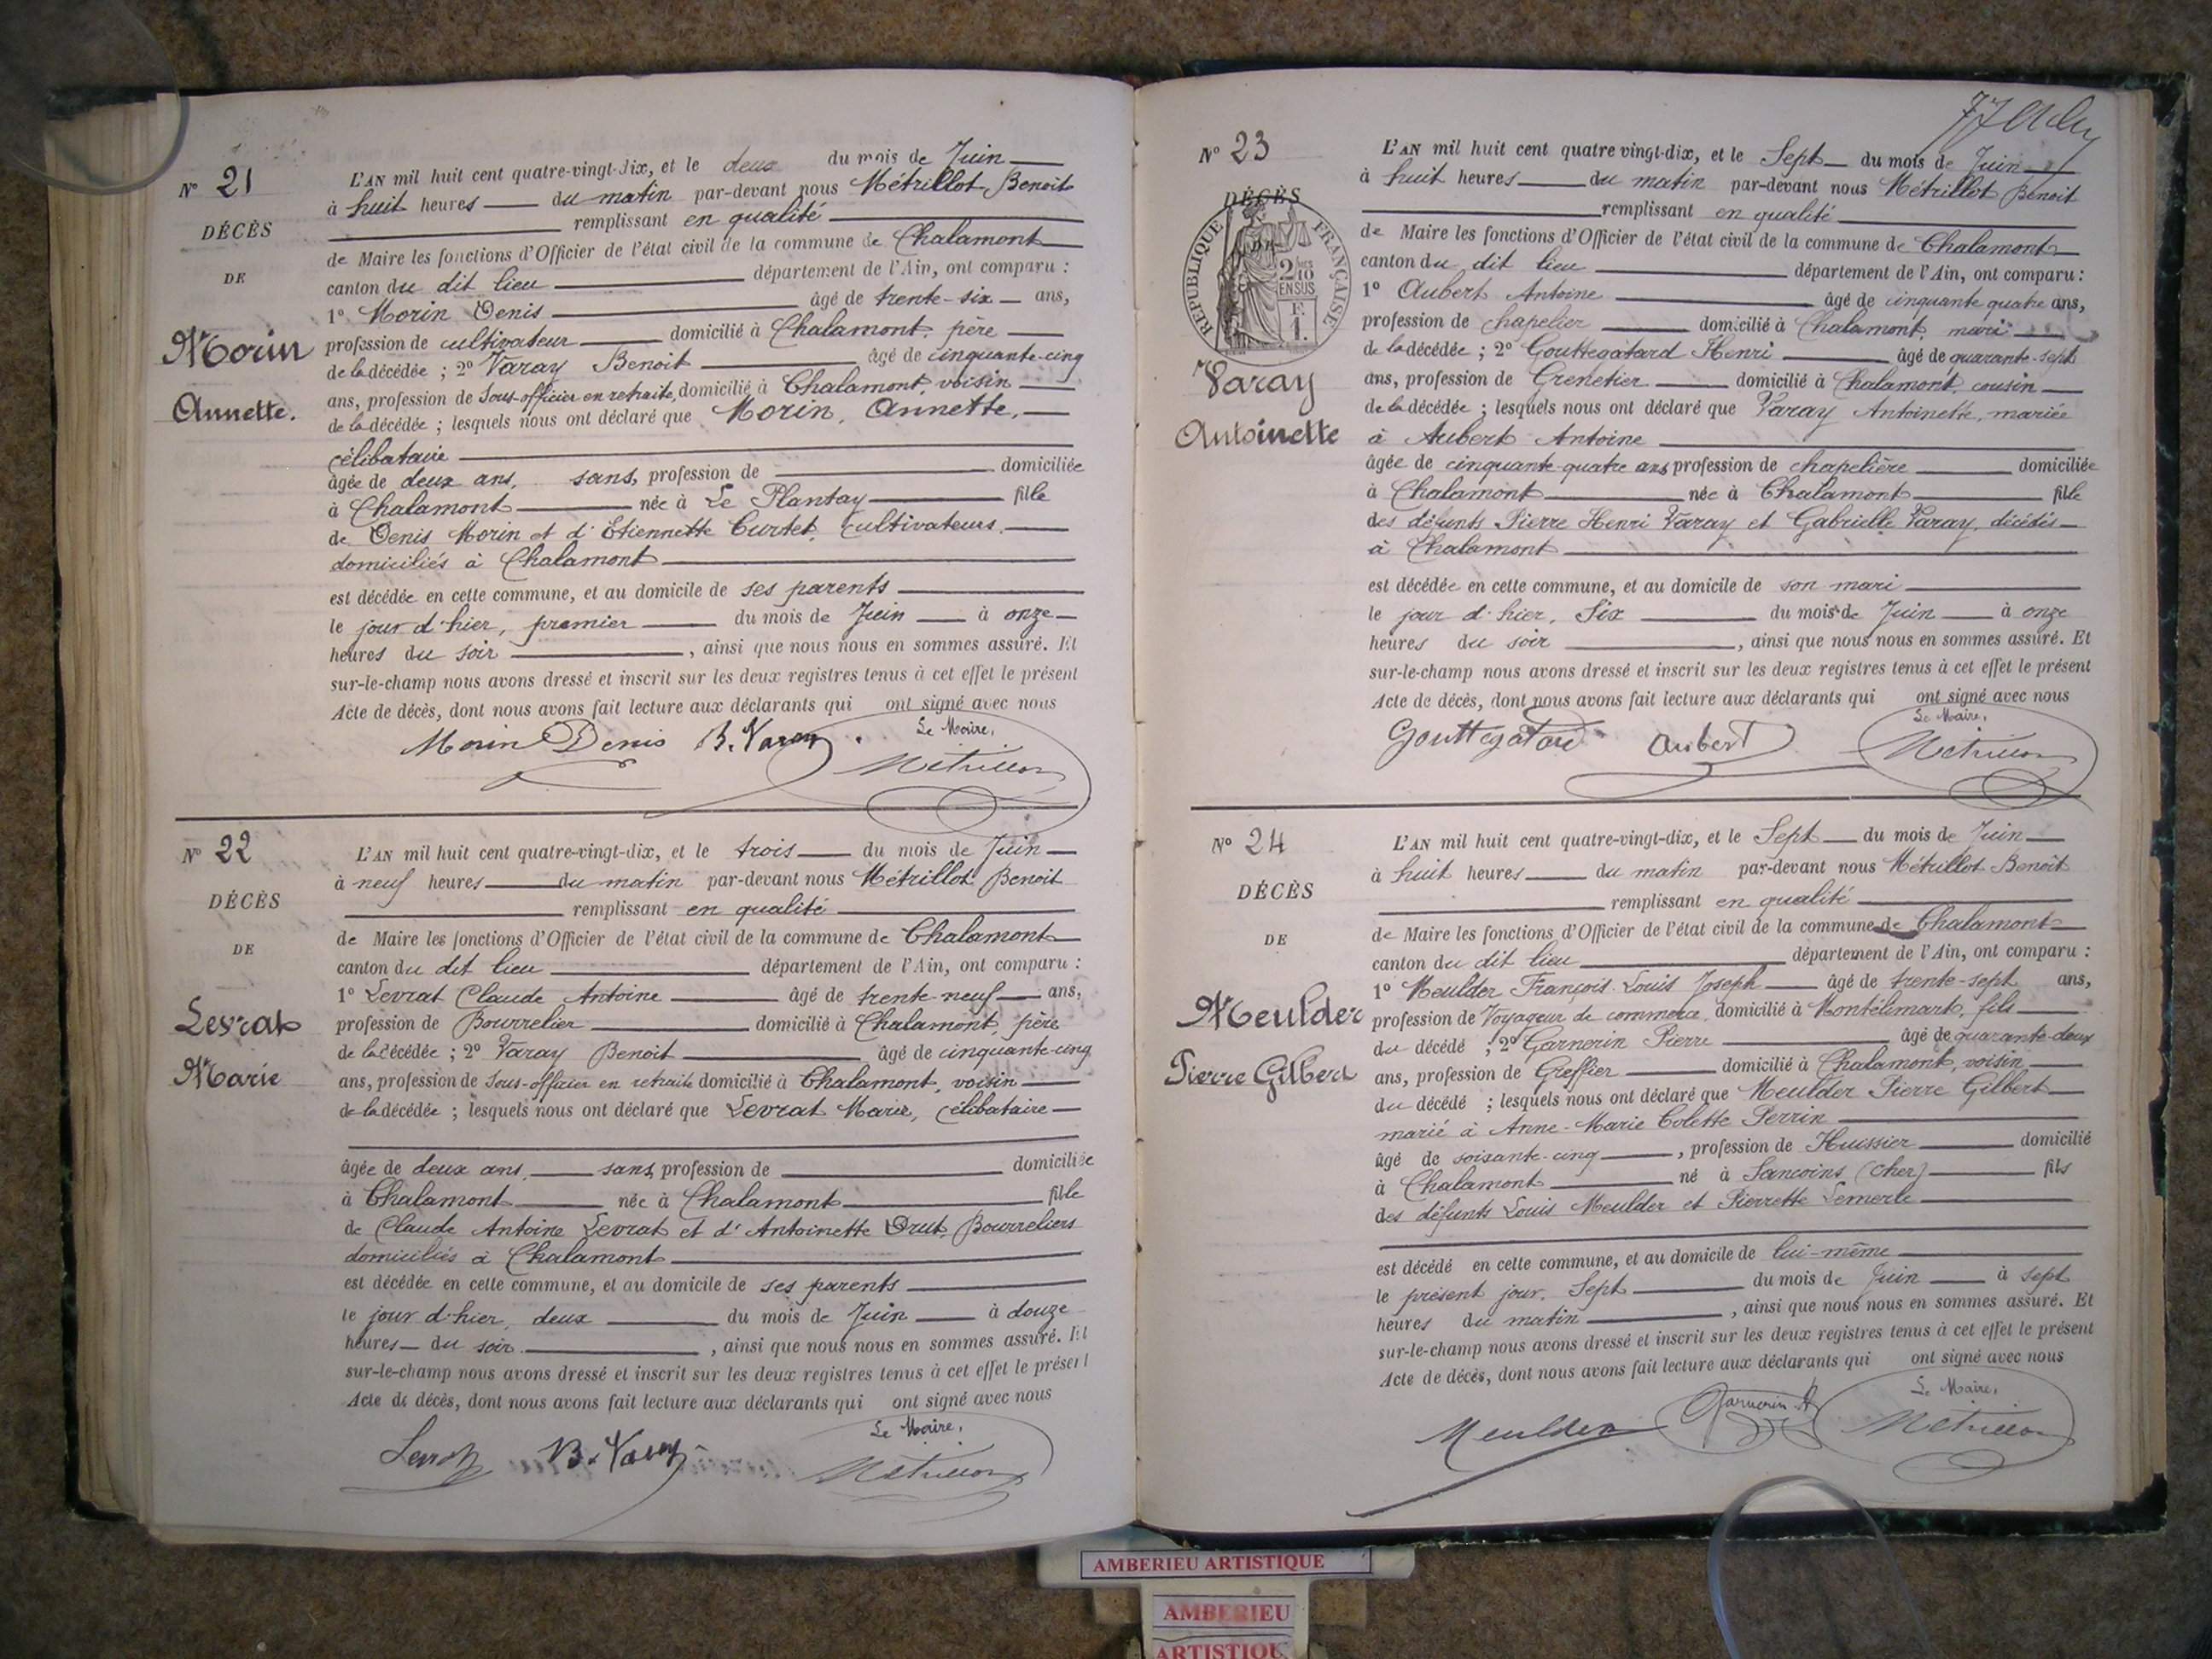 N° 21
DÉCÈS
DE
Morin
Annette.
L'AN mil huit cent quatre-vingt-dix, et le deux du mois de Juin
à huit heures du matin par-devant nous Métrillot Benoit
remplissant en qualité
de Maire les fonctions d'Officier de l'état civil de la commune de Chalamont
canton du dit lieu département de l'Ain, ont comparu :
1° Morin Denis âgé de trente-six ans,
profession de cultivateur domicilié à Chalamont, père
de la décédée ; 2° Varay Benoit âgé de cinquante-cinq
ans, profession de Sous-officier en retraite, domicilié à Chalamont, voisin
de la décédée ; lesquels nous ont déclaré que Morin, Annette,
célibataire
âgée de deux ans, sans profession de domiciliée
à Chalamont née à Le Plantay fille
de Denis Morin et d'Etiennette Curtet, cultivateurs,
domiciliés à Chalamont
est décédée en cette commune, et au domicile de ses parents
le jour d'hier, premier du mois de Juin à onze
heures du soir , ainsi que nous nous en sommes assuré. Et
sur-le-champ nous avons dressé et inscrit sur les deux registres tenus à cet effet le présent
Acte de décès, dont nous avons fait lecture aux déclarants qui ont signé avec nous
Morin Denis B. Varay Le Maire,
Métrillot
N° 22
DÉCÈS
DE
Levrat
Marie
L'AN mil huit cent quatre-vingt-dix, et le trois du mois de Juin
à neuf heures du matin par-devant nous Métrillot Benoit
remplissant en qualité
de Maire les fonctions d'Officier de l'état civil de la commune de Chalamont
canton du dit lieu département de l'Ain, ont comparu :
1° Levrat Claude Antoine âgé de trente-neuf ans,
profession de Bourrelier domicilié à Chalamont, père
de la décédée ; 2° Varay Benoit âgé de cinquante-cinq
ans, profession de Sous-officier en retraite domicilié à Chalamont, voisin
de la décédée ; lesquels nous ont déclaré que Levrat Marie, célibataire
âgée de deux ans, sans profession de domiciliée
à Chalamont née à Chalamont fille
de Claude Antoine Levrat et d'Antoinette Drut, Bourreliers
domiciliés à Chalamont
est décédée en cette commune, et au domicile de ses parents
le jour d'hier, deux du mois de Juin à douze
heures du soir , ainsi que nous nous en sommes assuré. Et
sur-le-champ nous avons dressé et inscrit sur les deux registres tenus à cet effet le présent
Acte de décès, dont nous avons fait lecture aux déclarants qui ont signé avec nous
Levrat B. Varay Le Maire,
Métrillot
N° 23
DÉCÈS
DE
RÉPUBLIQUE FRANÇAISE
2/10 EN SUS
F. 1.
Varay
Antoinette
L'AN mil huit cent quatre vingt-dix, et le Sept du mois de Juin
à huit heures du matin par-devant nous Métrillot Benoit
remplissant en qualité
de Maire les fonctions d'Officier de l'état civil de la commune de Chalamont
canton du dit lieu département de l'Ain, ont comparu :
1° Aubert Antoine âgé de cinquante quatre ans,
profession de chapelier domicilié à Chalamont, mari
de la décédée ; 2° Gouttegatard Henri âgé de quarante-sept
ans, profession de Grenetier domicilié à Chalamont, cousin
de la décédée ; lesquels nous ont déclaré que Varay Antoinette, mariée
à Aubert Antoine
âgée de cinquante-quatre ans profession de chapelière domiciliée
à Chalamont née à Chalamont fille
des défunts Pierre Henri Varay et Gabrielle Varay, décédés
à Chalamont
est décédée en cette commune, et au domicile de son mari
le jour d'hier, Six du mois de Juin à onze
heures du soir , ainsi que nous nous en sommes assuré. Et
sur-le-champ nous avons dressé et inscrit sur les deux registres tenus à cet effet le présent
Acte de décès, dont nous avons fait lecture aux déclarants qui ont signé avec nous
Gouttegatard Aubert Le Maire,
Métrillot
N° 24
DÉCÈS
DE
Meulder
Pierre Gilbert
L'AN mil huit cent quatre-vingt-dix, et le Sept du mois de Juin
à huit heures du matin par-devant nous Métrillot Benoit
remplissant en qualité
de Maire les fonctions d'Officier de l'état civil de la commune de Chalamont
canton du dit lieu département de l'Ain, ont comparu :
1° Meulder François Louis Joseph âgé de trente-sept ans,
profession de Voyageur de commerce domicilié à Montélimart, fils
du décédé ; 2° Garnerin Pierre âgé de quarante-deux
ans, profession de Greffier domicilié à Chalamont, voisin
du décédé ; lesquels nous ont déclaré que Meulder Pierre Gilbert
marié à Anne-Marie Colette Perrin
âgé de soixante-cinq , profession de Huissier domicilié
à Chalamont né à Sancoins (Cher) fils
des défunts Louis Meulder et Pierrette Lemerle
est décédé en cette commune, et au domicile de lui-même
le présent jour, Sept du mois de Juin à sept
heures du matin , ainsi que nous nous en sommes assuré. Et
sur-le-champ nous avons dressé et inscrit sur les deux registres tenus à cet effet le présent
Acte de décès, dont nous avons fait lecture aux déclarants qui ont signé avec nous
Meulder Garnerin Le Maire,
Métrillot
AMBERIEU ARTISTIQUE
AMBERIEU
ARTISTIQUE